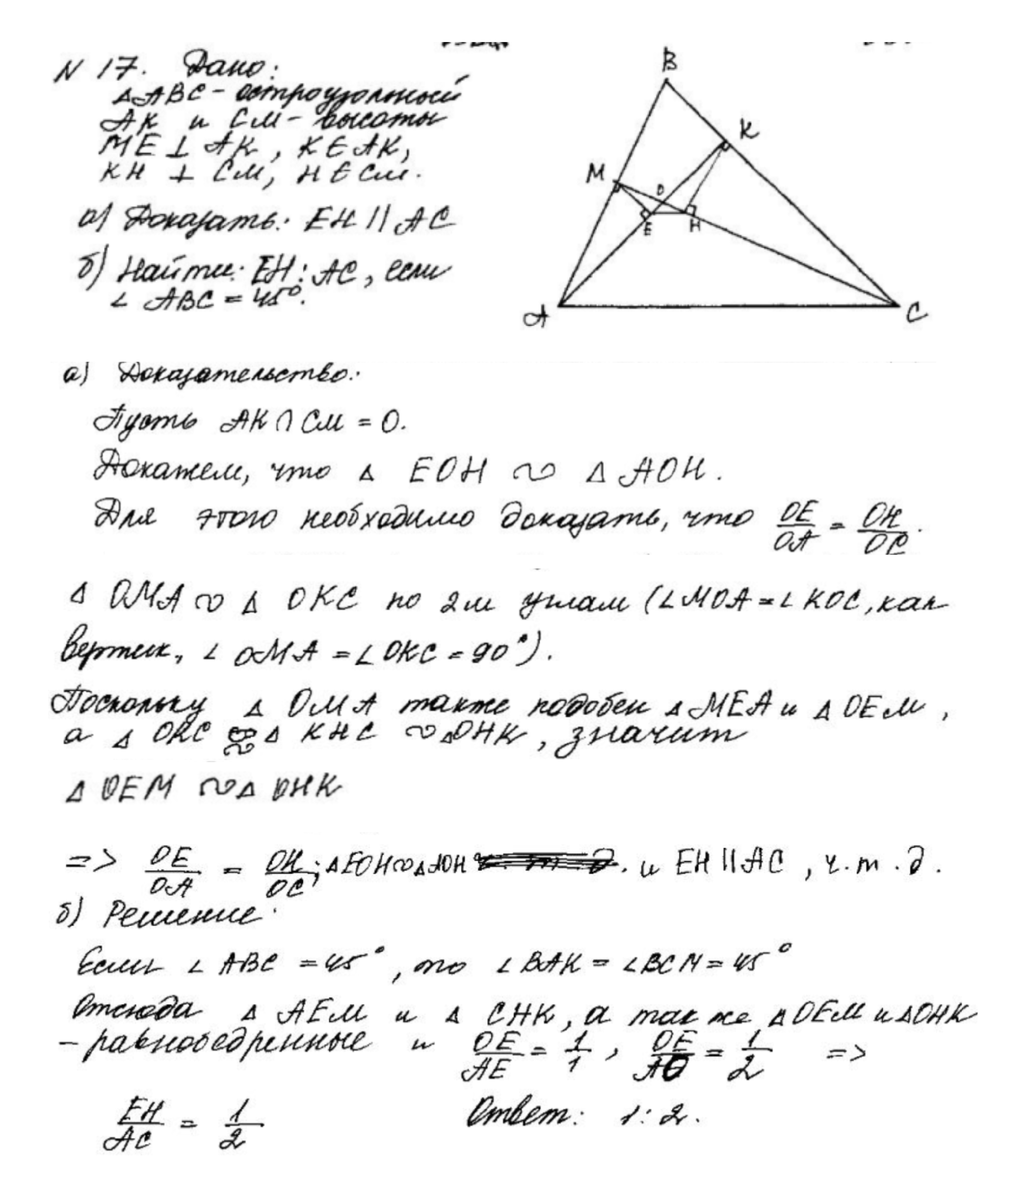 N 17. Дано:
△ABC - остроугольный
AK и CM - высоты
ME ⊥ AK, K∈AK,
KH ⊥ CM, H∈CM.
а) Доказать: EH || AC
б) Найти: EH : AC, если
∠ ABC = 45°.
B
K
M
O
E
H
A
C
а) Доказательство:
Пусть AK ∩ CM = O.
Докажем, что △ EOH ∾ △ AOH.
Для этого необходимо доказать, что OE/OA = OH/OC.
△ OMA ∾ △ OKC по 2м углам (∠MOA = ∠KOC, как
вертик., ∠ OMA = ∠OKC = 90°).
Поскольку △ OMA также подобен △ MEA и △ OEM,
а △ OKC ∾ △ KHC ∾ △OHK, значит
△ OEM ∾ △ OHK
=> OE/OA = OH/OC; △EOH ∾ △AOH и EH || AC, ч.т.д.
б) Решение:
Если ∠ ABC = 45°, то ∠BAK = ∠BCM = 45°
Отсюда △ AEM и △ CHK, а также △OEM и △OHK
- равнобедренные и OE/AE = 1/1, OE/AO = 1/2 =>
EH/AC = 1/2 Ответ: 1:2.